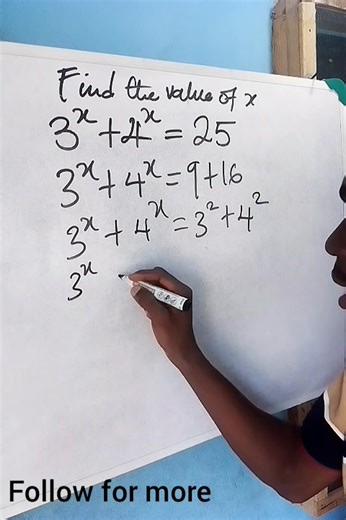 Find the value of x
3ˣ + 4ˣ = 25
3ˣ + 4ˣ = 9 + 16
3ˣ + 4ˣ = 3² + 4²
3ˣ
Follow for more